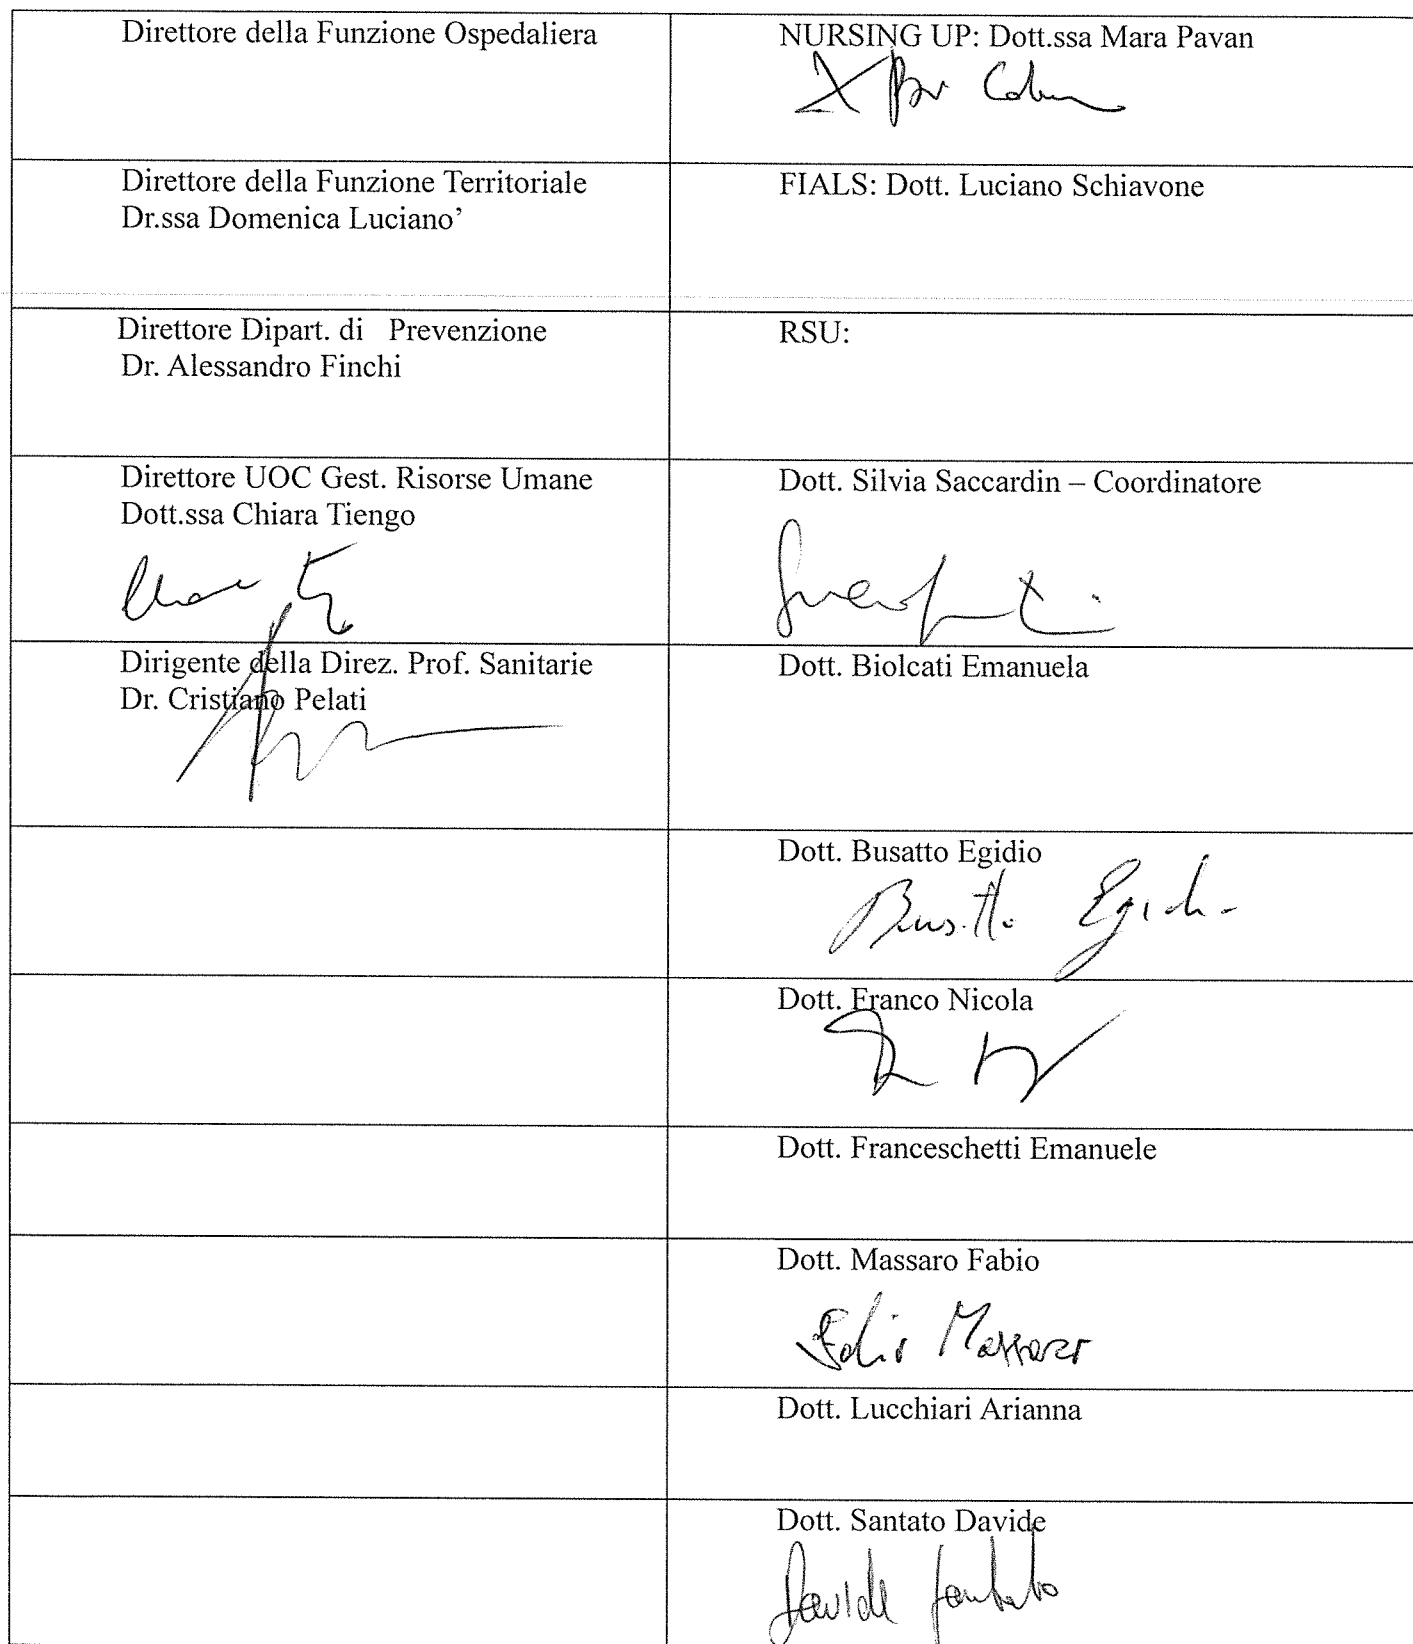 Direttore della Funzione Ospedaliera
NURSING UP: Dott.ssa Mara Pavan
Direttore della Funzione Territoriale
Dr.ssa Domenica Luciano’
FIALS: Dott. Luciano Schiavone
Direttore Dipart. di Prevenzione
Dr. Alessandro Finchi
RSU:
Direttore UOC Gest. Risorse Umane
Dott.ssa Chiara Tiengo
Dott. Silvia Saccardin – Coordinatore
Dirigente della Direz. Prof. Sanitarie
Dr. Cristiano Pelati
Dott. Biolcati Emanuela
Dott. Busatto Egidio
Busatto Egidio
Dott. Franco Nicola
Dott. Franceschetti Emanuele
Dott. Massaro Fabio
Fabio Massaro
Dott. Lucchiari Arianna
Dott. Santato Davide
Davide Santato